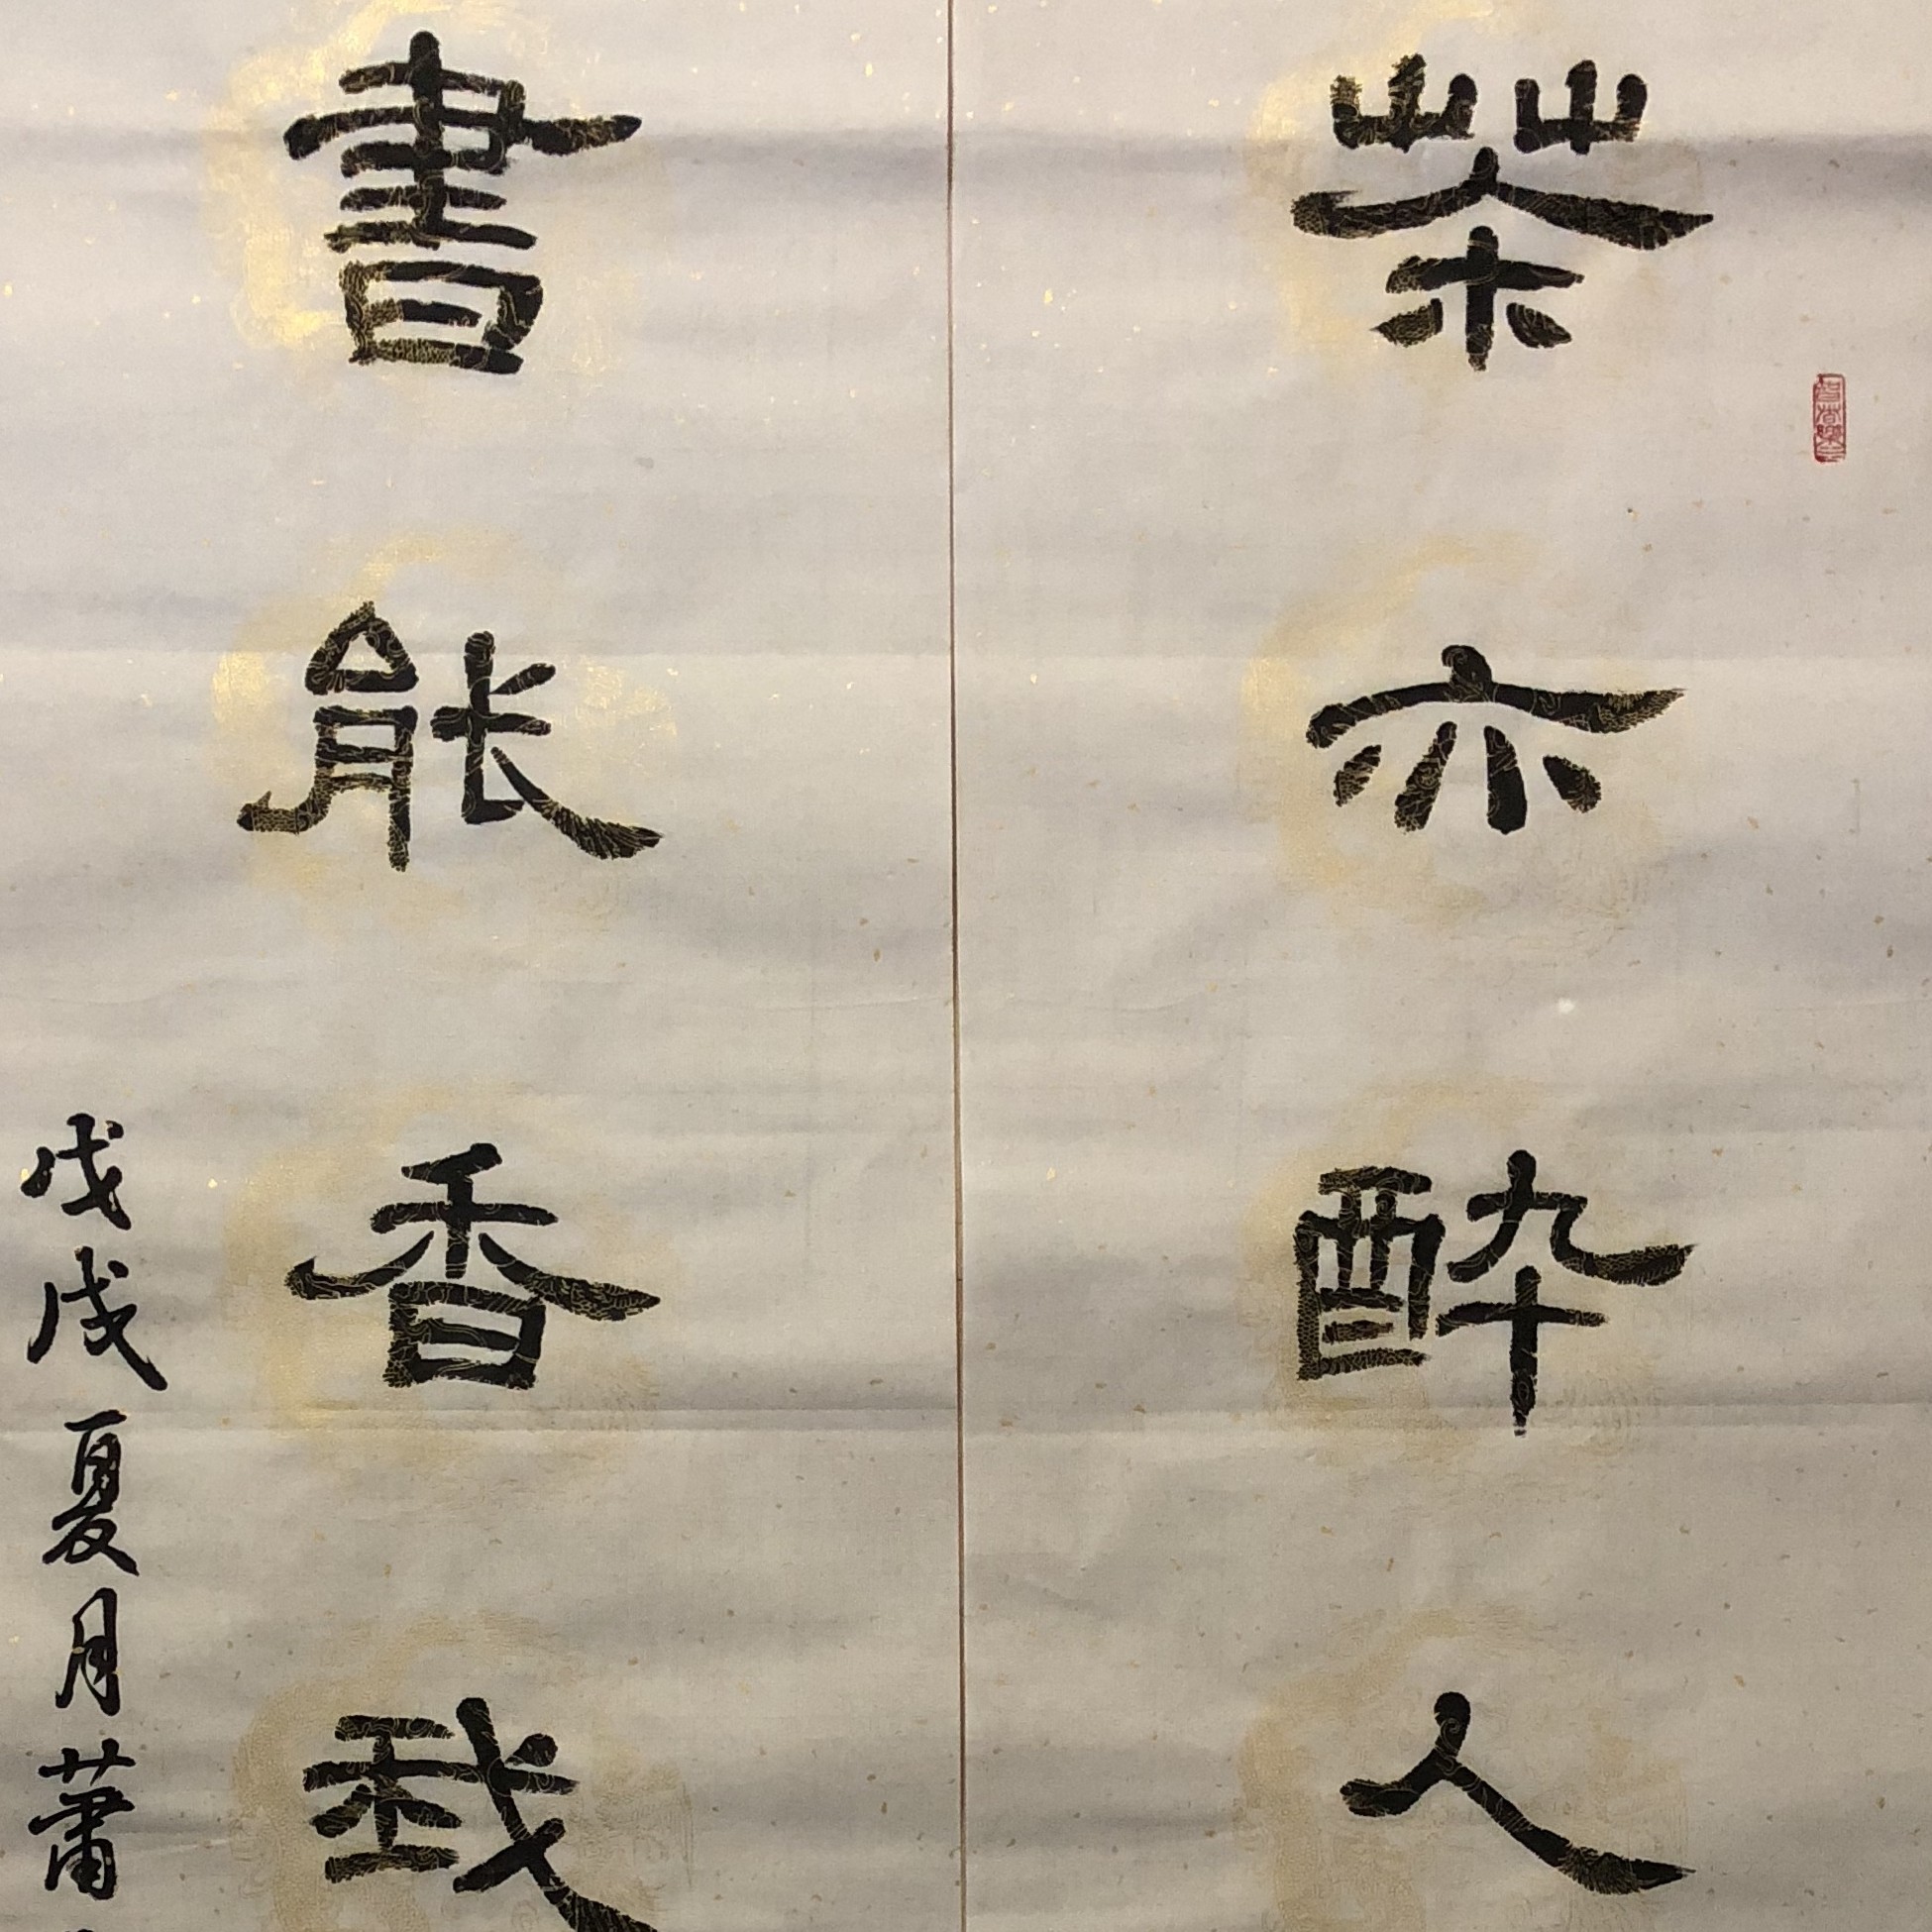 茶亦醉人
書能香我
戊戌夏月蕭